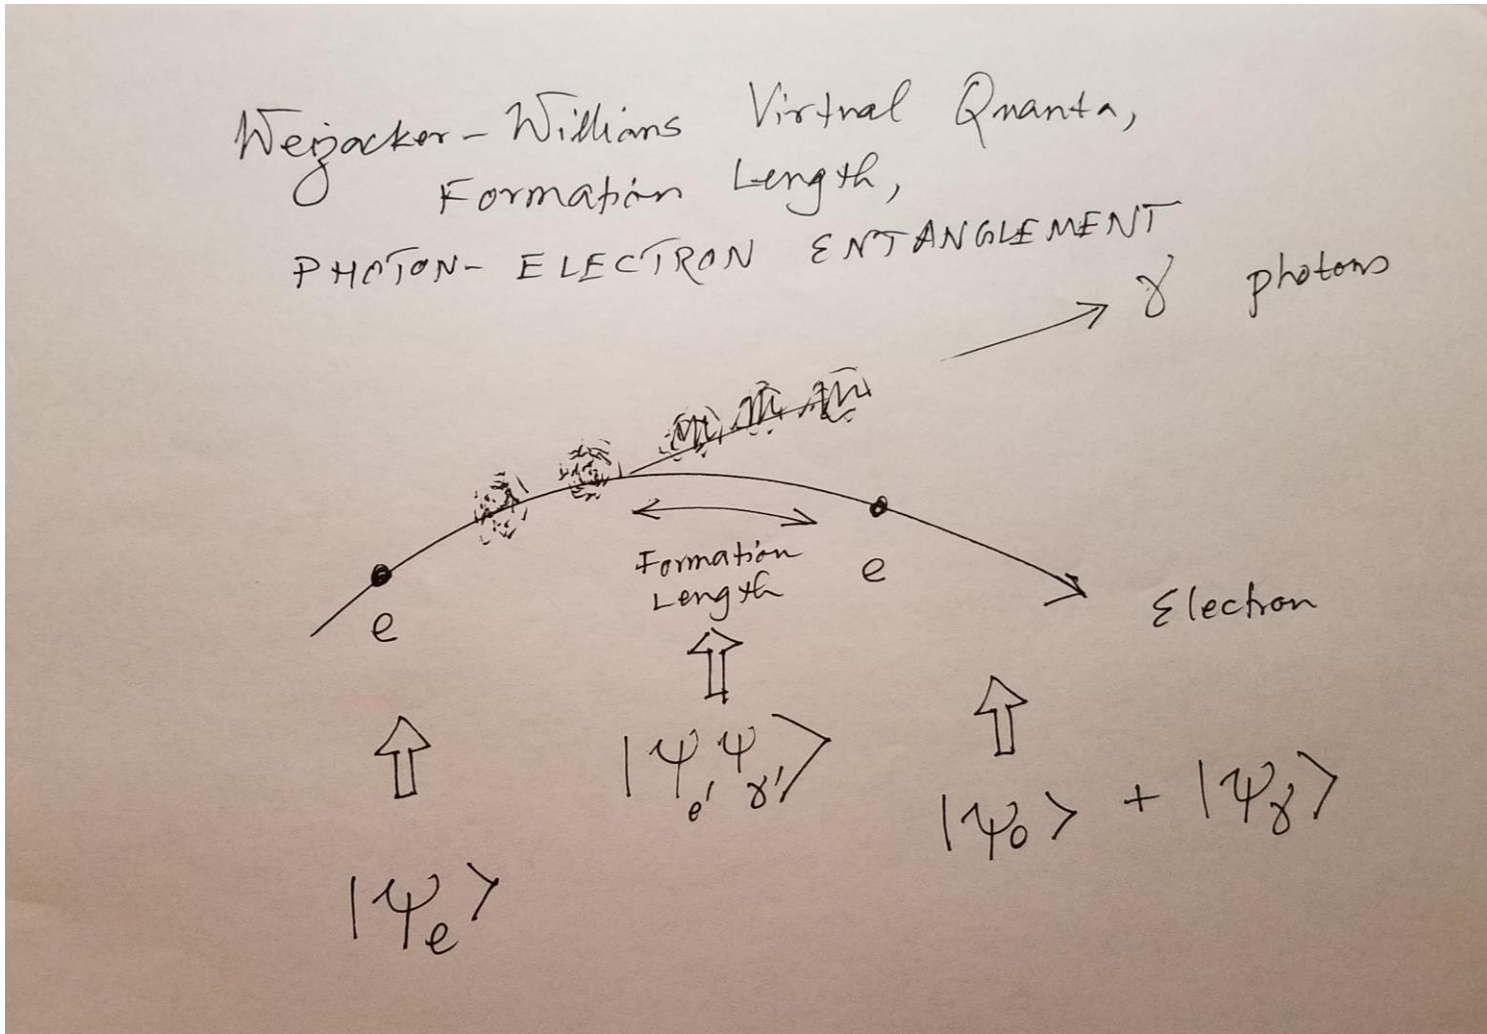 Weizacker - Willians Virtual Quanta,
Formation Length,
PHOTON - ELECTRON ENTANGLEMENT
γ photons
Formation
Length
e
e
Electron
|Ψe' Ψγ'>
|Ψ0> + |Ψγ>
|Ψe>